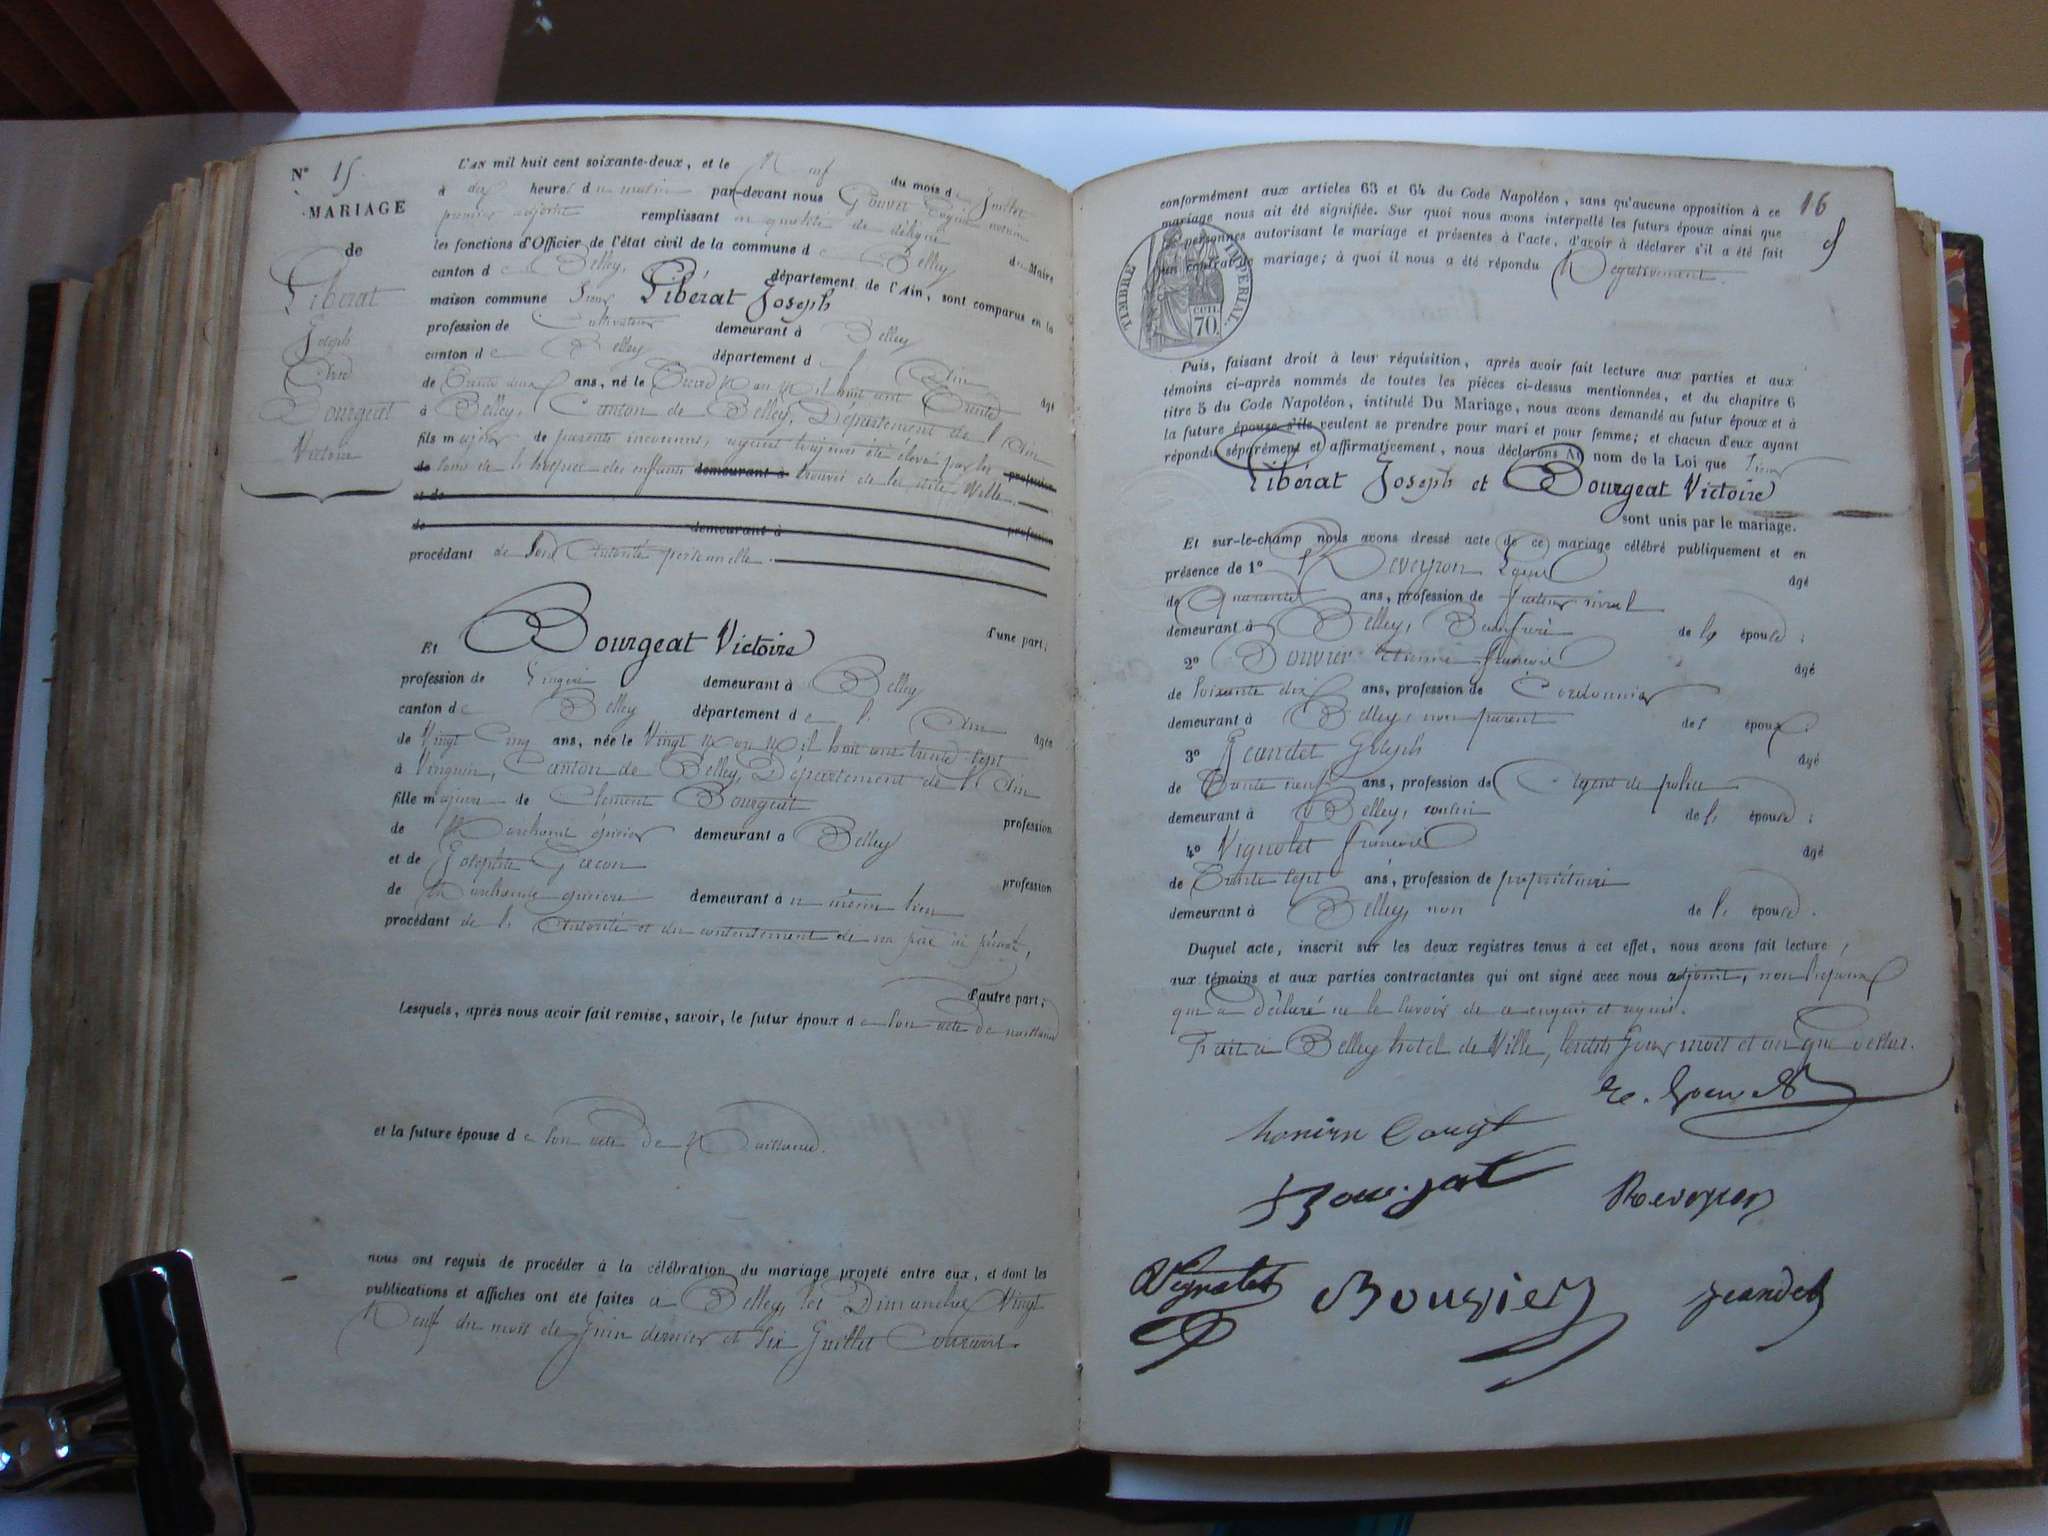 N° 15
MARIAGE
de
Libérat
Joseph
Avec
Bourgeat
Victoire
L'AN mil huit cent soixante-deux, et le Neuf du mois de Juillet
à dix heures du matin par-devant nous Gouvet
premier adjoint remplissant en qualité de délégué du Maire
les fonctions d'Officier de l'état civil de la commune de Belley
canton de Belley, département de l'Ain, sont comparus en la
maison commune Sieur Libérat Joseph
profession de Cultivateur demeurant à Belley
canton de Belley département de l'Ain âgé
de Trente deux ans, né le Mil huit cent Trente
à Belley, Canton de Belley, Département de l'Ain
fils majeur de parents inconnus, ayant toujours été élevé par les profession
de soins de l'hospice des enfants demeurant à trouvés de la dite Ville.
et de
de demeurant à profession
procédant de son Autorité personnelle.
d'une part;
Et Bourgeat Victoire
profession de Lingère demeurant à Belley
canton de Belley département de l'Ain âgée
de Vingt Cinq ans, née le Vingt Mil huit cent trente sept
à Virignin, Canton de Belley, Département de l'Ain
fille majeure de Clément Bourgeat profession
de Marchand épicier demeurant à Belley
et de Josephte Gacon profession
de Marchande épicière demeurant au même lieu
procédant de l'Autorité et du consentement de son père ici présent,
d'autre part;
Lesquels, après nous avoir fait remise, savoir, le futur époux de son acte de naissance
et la future épouse de son acte de Naissance.
nous ont requis de procéder à la célébration du mariage projeté entre eux, et dont les
publications et affiches ont été faites à Belley, les Dimanches Vingt
Neuf du mois de Juin dernier et Six Juillet Courant.
16
conformément aux articles 63 et 64 du Code Napoléon, sans qu'aucune opposition à ce
mariage nous ait été signifiée. Sur quoi nous avons interpellé les futurs époux ainsi que
les personnes autorisant le mariage et présentes à l'acte, d'avoir à déclarer s'il a été fait
un contrat de mariage; à quoi il nous a été répondu Négativement.
TIMBRE IMPÉRIAL
CENT. 70.
Puis, faisant droit à leur réquisition, après avoir fait lecture aux parties et aux
témoins ci-après nommés de toutes les pièces ci-dessus mentionnées, et du chapitre 6
titre 5 du Code Napoléon, intitulé Du Mariage, nous avons demandé au futur époux et à
la future épouse s'ils veulent se prendre pour mari et pour femme; et chacun d'eux ayant
répondu séparément et affirmativement, nous déclarons AU nom de la Loi que Sieur
Libérat Joseph et Bourgeat Victoire
sont unis par le mariage.
Et sur-le-champ nous avons dressé acte de ce mariage célébré publiquement et en
présence de 1° Reveyron Louis âgé
de Quarante ans, profession de facteur rural
demeurant à Belley, Beaufrère de la épouse;
2° Bouvier Etienne François âgé
de Soixante dix ans, profession de Cordonnier
demeurant à Belley, non parent de l' époux;
3° Jeandet Joseph âgé
de Trente neuf ans, profession de Agent de police
demeurant à Belley, cousin de l' épouse;
4° Vignolet François âgé
de Trente sept ans, profession de propriétaire
demeurant à Belley, non de l' épouse.
Duquel acte, inscrit sur les deux registres tenus à cet effet, nous avons fait lecture
aux témoins et aux parties contractantes qui ont signé avec nous adjoint, non l'époux
qui a déclaré ne le savoir de ce enquis et requis.
Fait à Belley hotel de Ville, lesdits Jour mois et an que dessus.
Bourgat
Reveyron
Vignolet
Bouvier
Jeandet